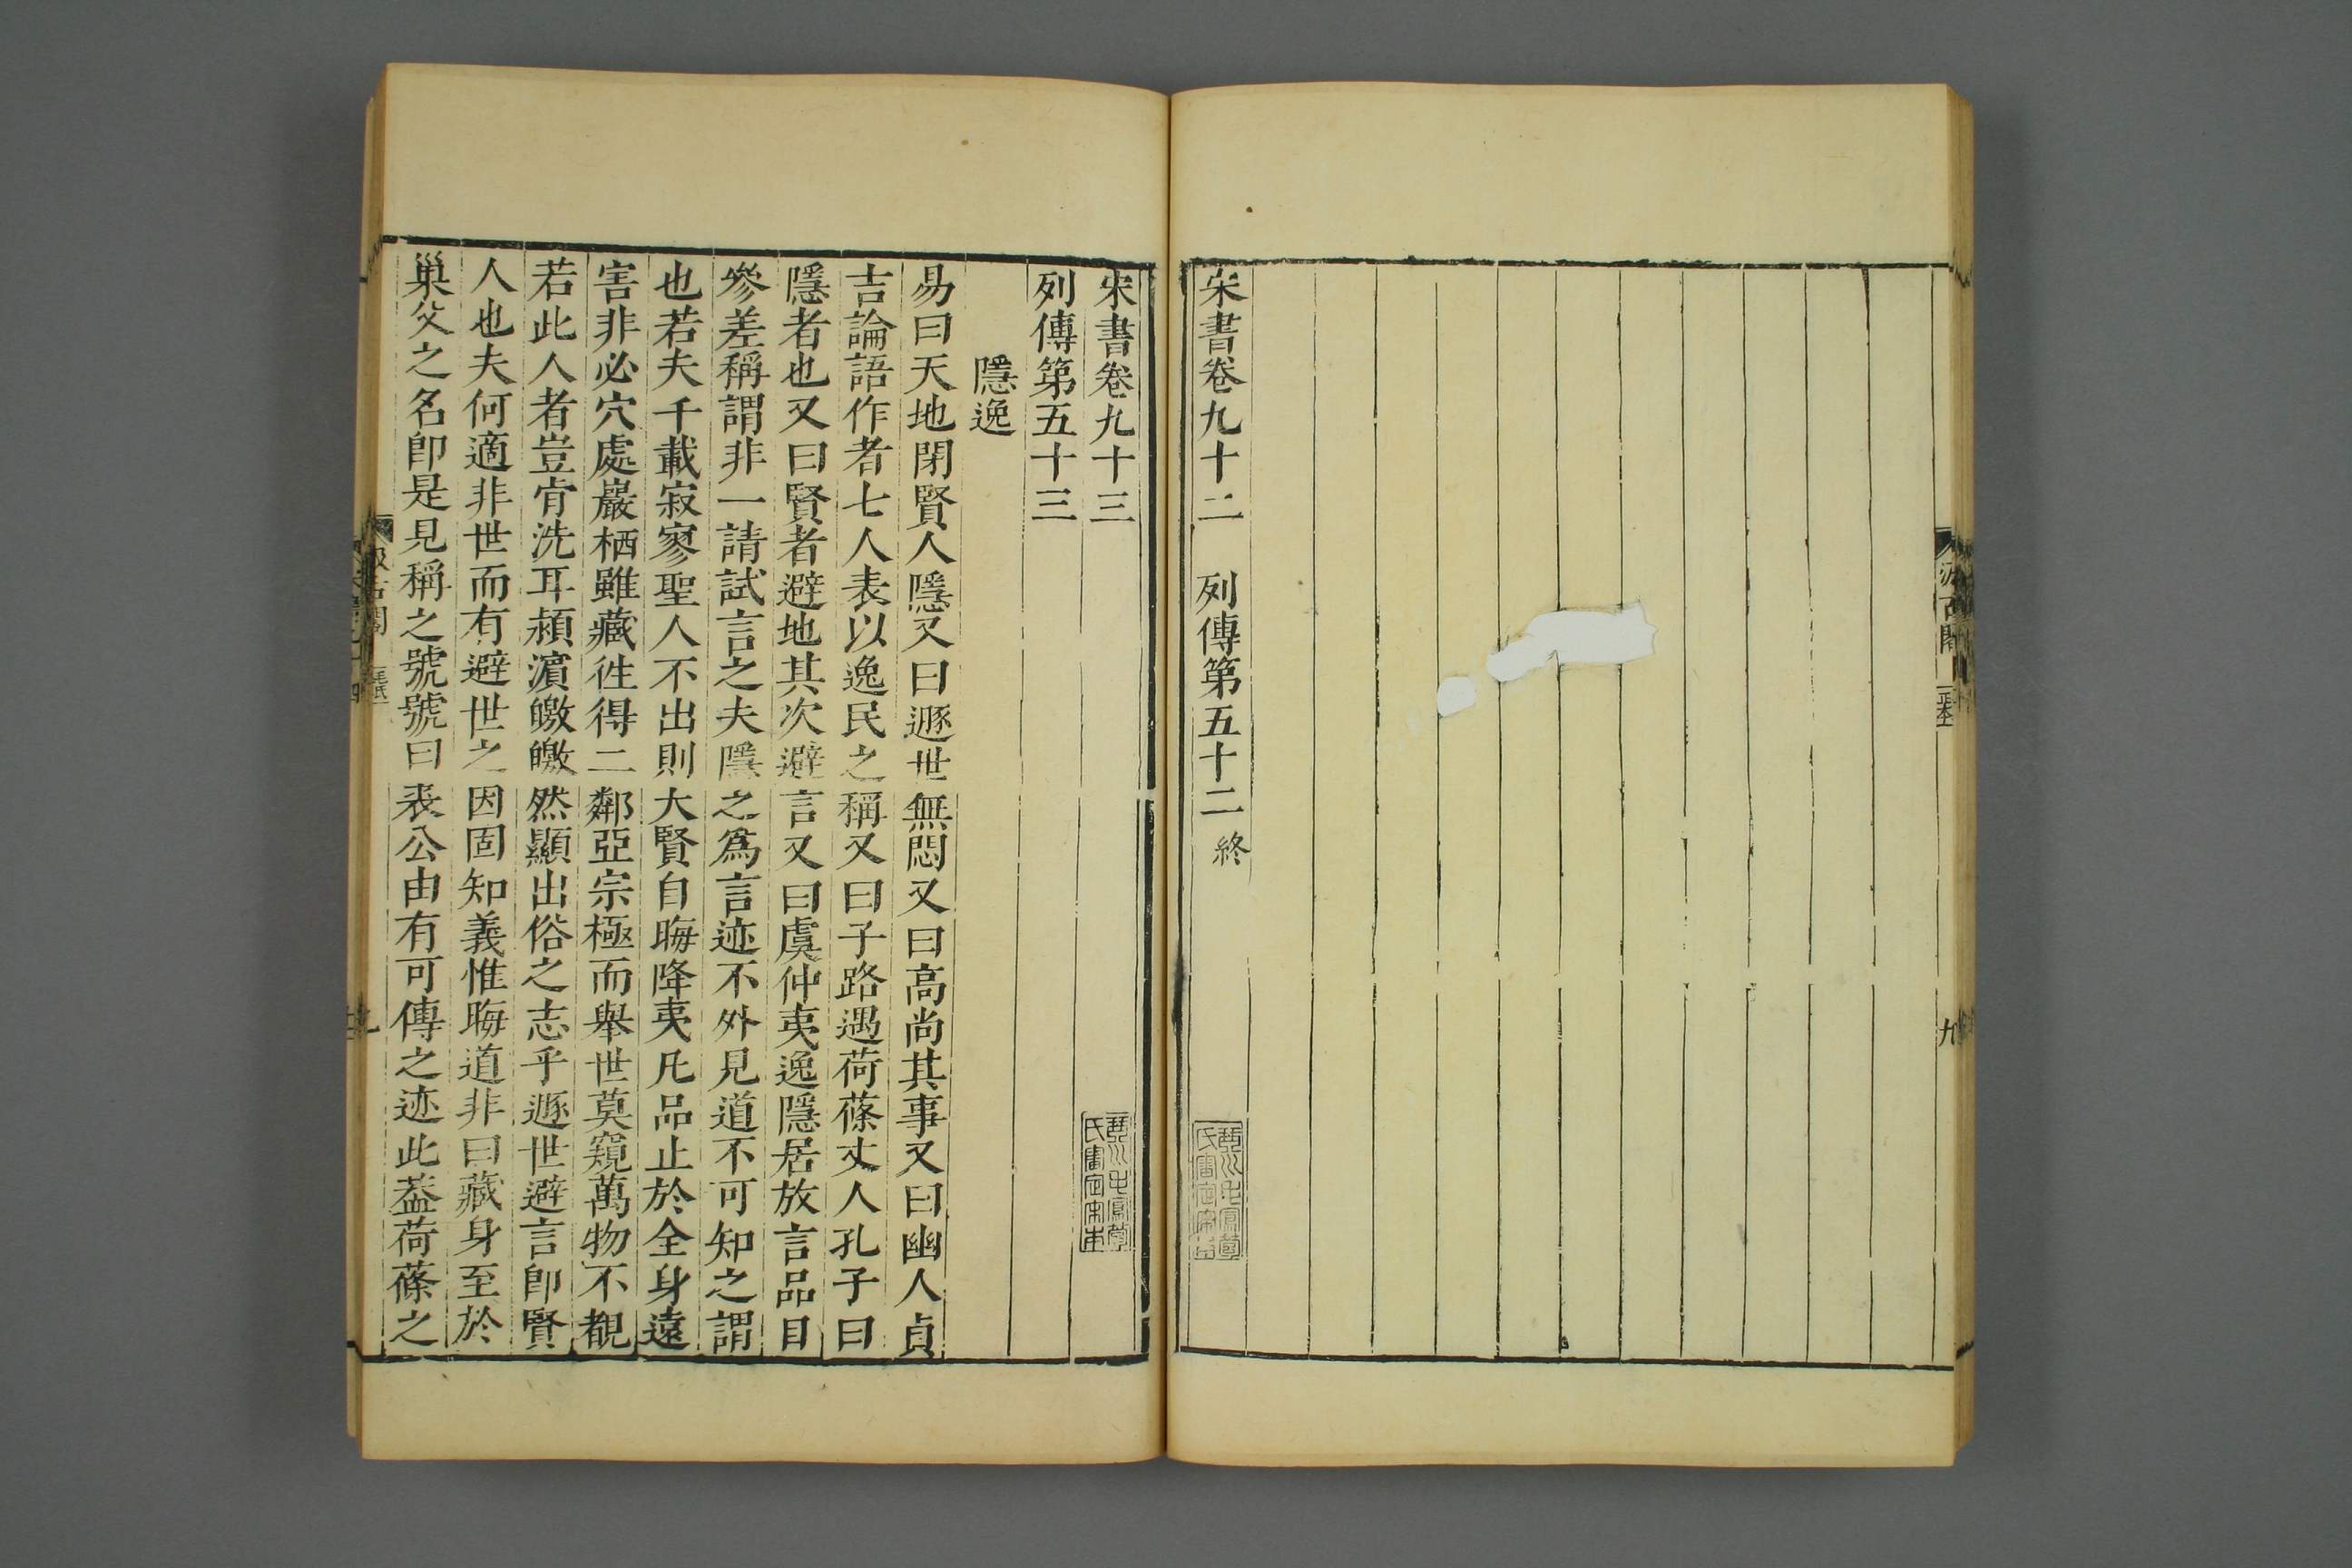 汲古閣
九
宋書卷九十二　列傳第五十二終
宋書卷九十三
列傳第五十三
隱逸
易曰天地閉賢人隱又曰遯世無悶又曰高尚其事又曰幽人貞
吉論語作者七人表以逸民之稱又曰子路遇荷蓧丈人孔子曰
隱者也又曰賢者避地其次避言又曰虞仲夷逸隱居放言品目
參差稱謂非一請試言之夫隱之爲言迹不外見道不可知之謂
也若夫千載寂寥聖人不出則大賢自晦降夷凡品止於全身遠
害非必穴處巖栖雖藏徃得二鄰亞宗極而舉世莫窺萬物不覩
若此人者豈肯洗耳潁濵皦皦然顯出俗之志乎遯世避言卽賢
人也夫何適非世而有避世之因固知義惟晦道非曰藏身至於
巢父之名卽是見稱之號號曰裘公由有可傳之迹此葢荷蓧之
汲古閣